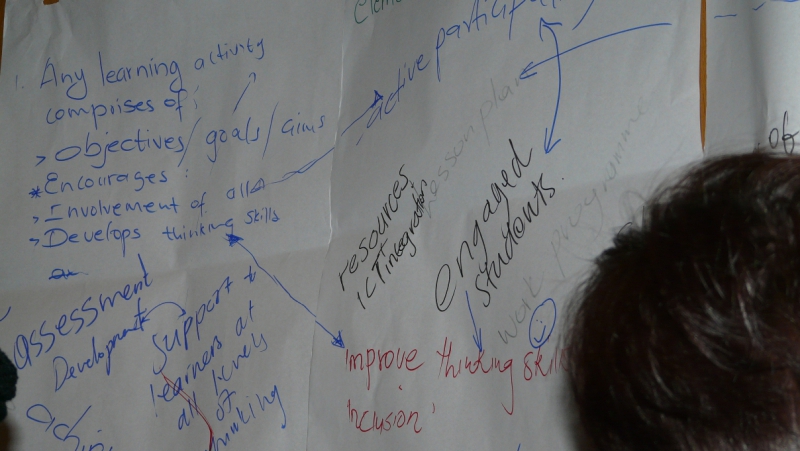 1. Any learning activity
comprises of:
> Objectives/goals/aims
* Encourages:
> Involvement of all
> Develops thinking skills
assessment
Development
support to
learners at
all levels
of
thinking
active
lesson plan
resources
ICT integration
engaged
students.
work programme
Improve thinking skills
'inclusion'
of